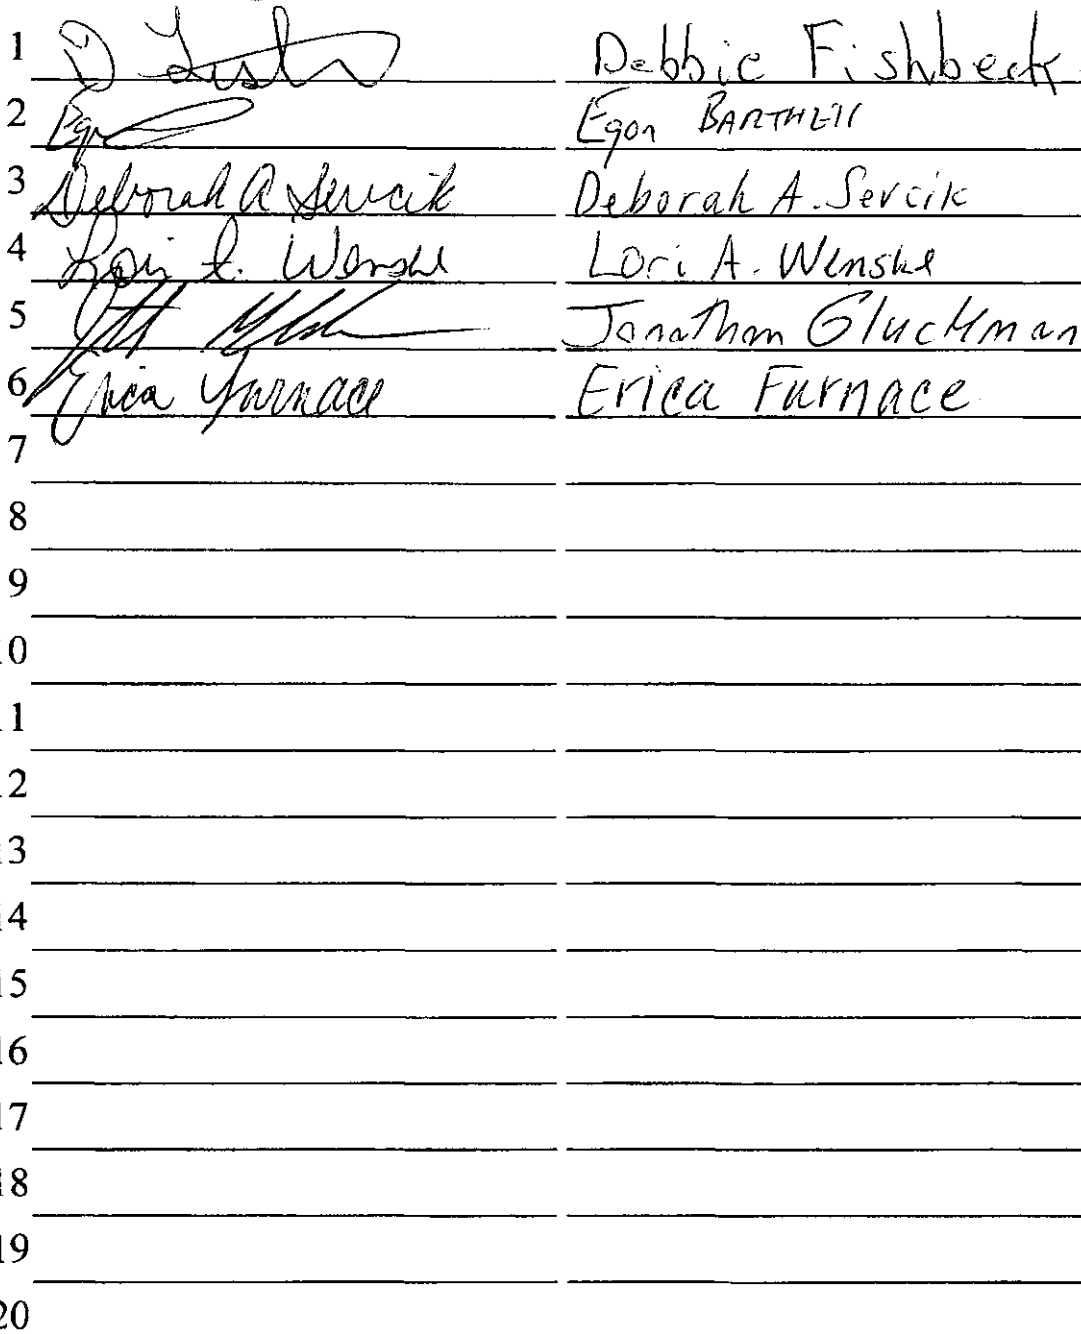 1 D Debbie Fishbeck
2 Egon
3 Deborah A Sevcik Deborah A. Sevcik
4 Lori A. Wenske Lori A. Wenske
5 Jonathan Gluckman
6 Erica Furnace Erica Furnace
7
8
9
0
1
2
3
4
15
16
17
18
19
20